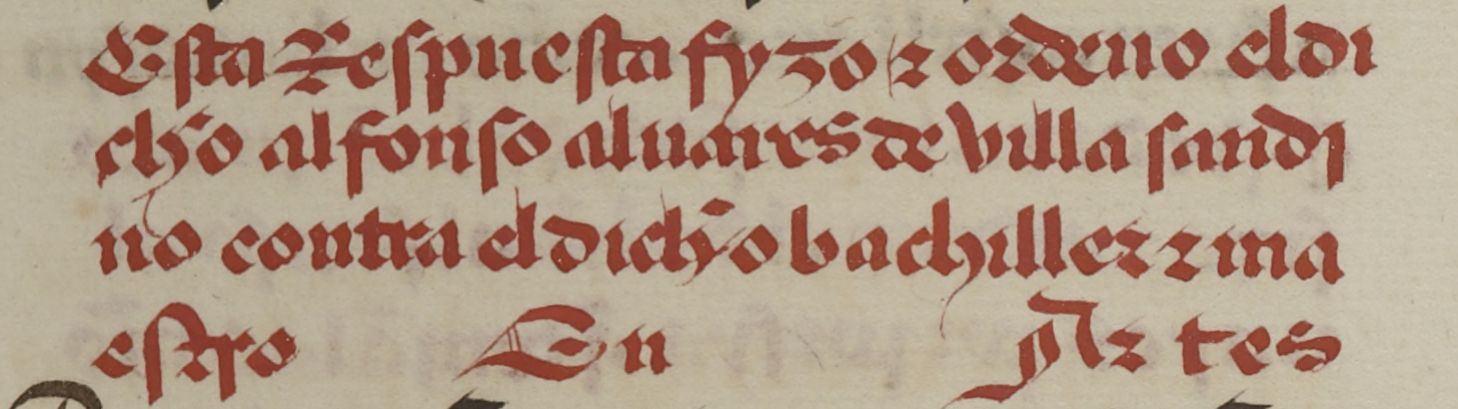 Esta Respuesta fyzo & ordeno el di
cho alfonso aluares de villa sandi
no contra el dicho bachiller & ma
estro En Artes